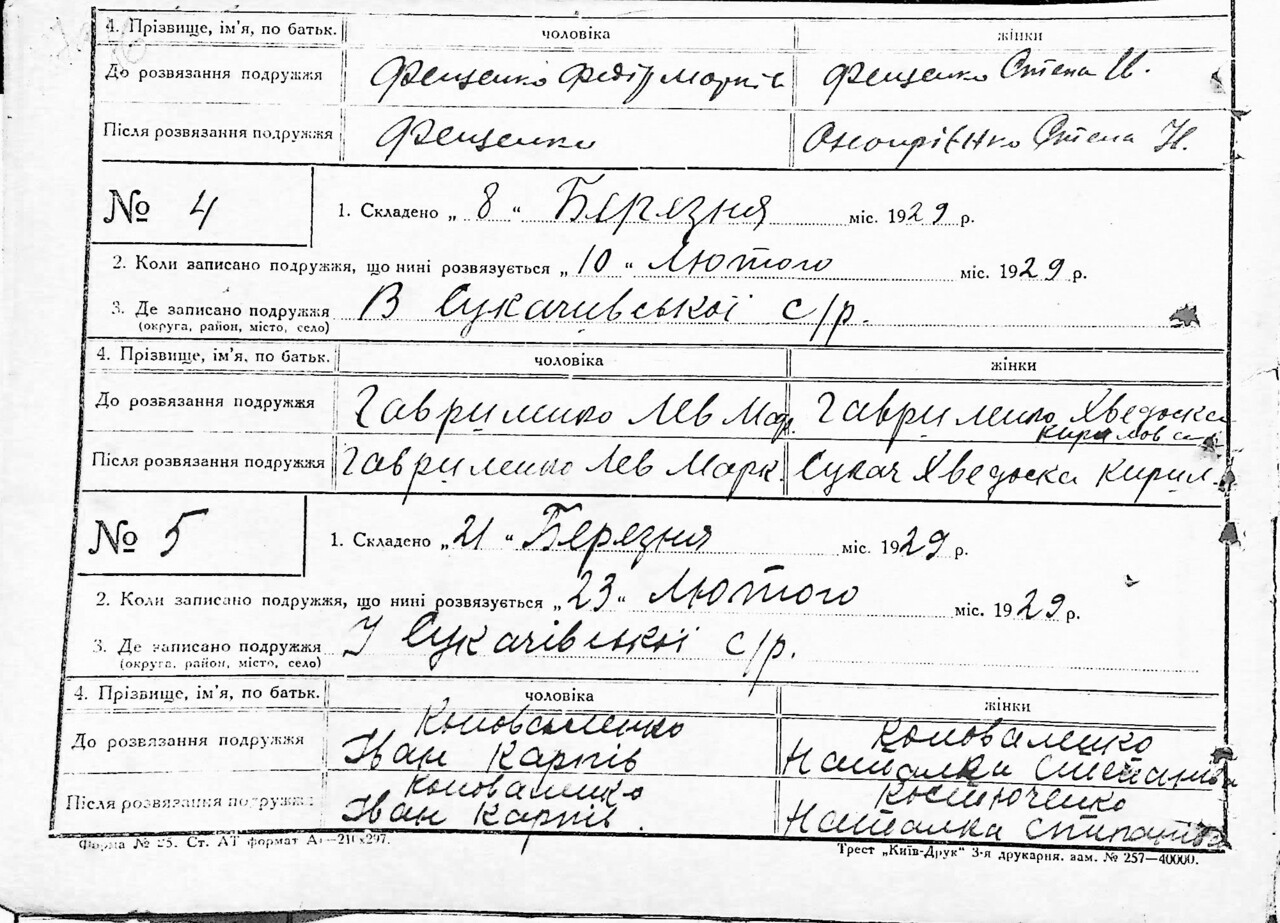 4. Прізвище, ім'я, по батьк. чоловіка жінки
До розвязання подружжя Фещенко Федір Марків Фещенко Степа Н.
Після розвязання подружжя Фещенко Оноприєнко Степа Н.
№ 4 1. Складено „ 8 “ Березня міс. 1929 р.
2. Коли записано подружжя, що нині розвязується „ 10 “ Лютого міс. 1929 р.
3. Де записано подружжя В Сукачивської с/р.
(округа, район, місто, село)
4. Прізвище, ім'я, по батьк. чоловіка жінки
До розвязання подружжя Гавриленко Лев Мар. Гавриленко Хведоска
Кирилов
Після розвязання подружжя Гавриленко Лев Марк. Сукач Хведоска Кирил.
№ 5 1. Складено „ 21 “ Березня міс. 1929 р.
2. Коли записано подружжя, що нині розвязується „ 23 “ Лютого міс. 1929 р.
3. Де записано подружжя У Сукачівської с/р.
(округа, район, місто, село)
4. Прізвище, ім'я, по батьк. чоловіка жінки
Коноваленко Коноваленко
До розвязання подружжя Іван Карпів Наталка Степанівна
Коноваленко Костюченко
Після розвязання подружжя Іван Карпів. Наталка Стипанівна
Форма № 25. Ст. АТ формат А4—210×297. Трест „Київ-Друк“ 3-я друкарня. зам. № 257—40000.